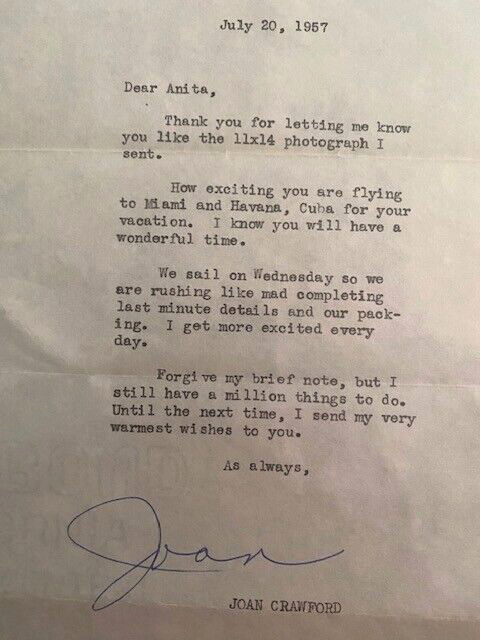 July 20, 1957
Dear Anita,
Thank you for letting me know
you like the 11x14 photograph I
sent.
How exciting you are flying
to Miami and Havana, Cuba for your
vacation. I know you will have a
wonderful time.
We sail on Wednesday so we
are rushing like mad completing
last minute details and our pack-
ing. I get more excited every
day.
Forgive my brief note, but I
still have a million things to do.
Until the next time, I send my very
warmest wishes to you.
As always,
Joan
JOAN CRAWFORD